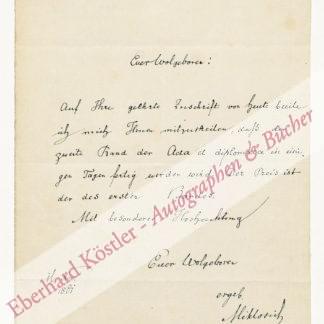 Euer Wolgeboren!
Auf Ihre geehrte Zuschrift von heute beeile
ich mich Ihnen mitzutheilen, daß der
zweite Band der Acta et diplomata in eini-
gen Tagen fertig werden wird. Der Preis ist
der des ersten Bandes.
Mit besonderer Hochachtung
Euer Wolgeboren
ergeb.
Miklosich
Eberhard Köstler - Autographen & Bücher